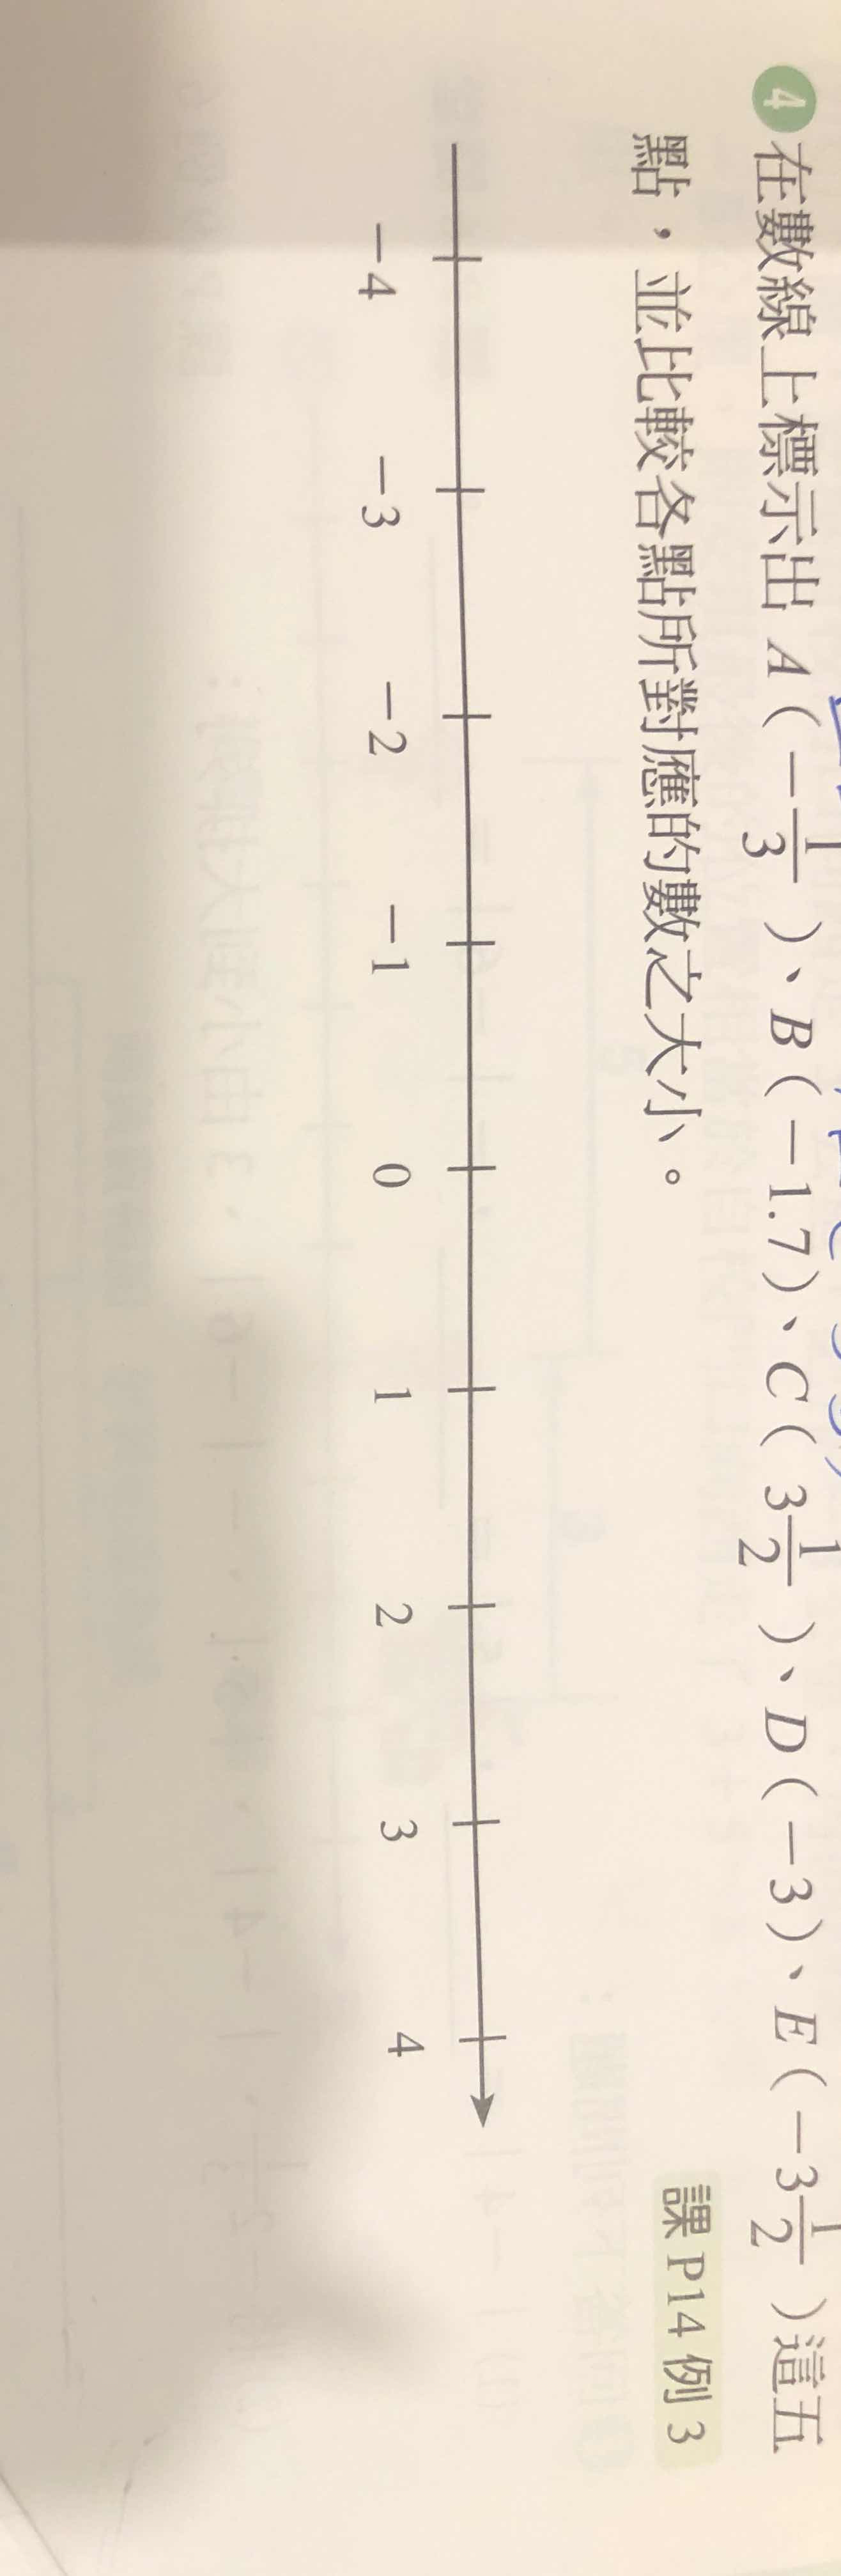 4 在數線上標示出 A(-1/3)、B(-1.7)、C(3 1/2)、D(-3)、E(-3 1/2)這五
點，並比較各點所對應的數之大小。
課 P14 例 3
-4 -3 -2 -1 0 1 2 3 4